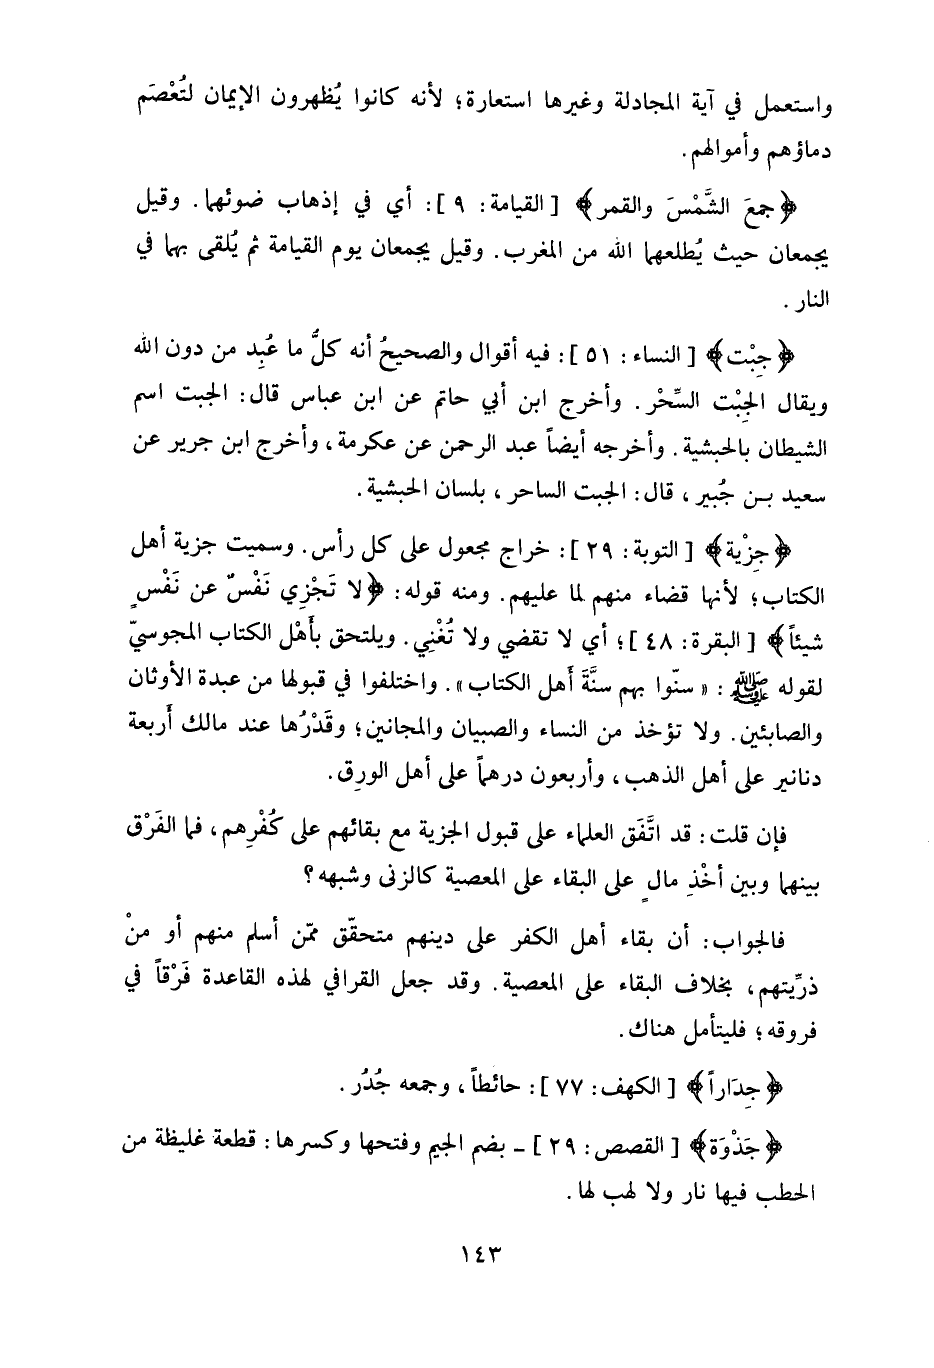 واستعمل في آية المجادلة وغيرها استعارة؛ لأنه كانوا يُظهرون الإيمان لتُعْصَم
دماؤهم وأموالهم.
﴿جمعَ الشَّمْسَ والقمر﴾ [القيامة: ٩]: أي في إذهاب ضوئهما. وقيل
يجمعان حيث يُطلعهما الله من المغرب. وقيل يجمعان يوم القيامة ثم يُلقى بهما في
النار.
﴿جِبْت﴾ [النساء: ٥١]: فيه أقوال والصحيحُ أنه كلُّ ما عُبِد من دون الله
ويقال الجِبْت السِّحْر. وأخرج ابن أبي حاتم عن ابن عباس قال: الجبت اسم
الشيطان بالحبشية. وأخرجه أيضاً عبد الرحمن عن عكرمة، وأخرج ابن جرير عن
سعيد بـن جُبير، قال: الجبت الساحر، بلسان الحبشية.
﴿جِزْية﴾ [التوبة: ٢٩]: خراج مجعول على كل رأس. وسميت جزية أهل
الكتاب؛ لأنها قضاء منهم لما عليهم. ومنه قوله: ﴿لا تَجْزِي نَفْسٌ عن نَفْسٍ
شيئاً﴾ [البقرة: ٤٨]؛ أي لا تقضي ولا تُغْنِي. ويلتحق بأَهْل الكتاب المجوسيّ
لقوله ﷺ: «سنّوا بهم سنَّة أهل الكتاب». واختلفوا في قبولها من عبدة الأوثان
والصابئين. ولا تؤخذ من النساء والصبيان والمجانين؛ وقَدْرُها عند مالك أربعة
دنانير على أهل الذهب، وأربعون درهماً على أهل الورِق.
فإن قلت: قد اتَّفَق العلماء على قبول الجزية مع بقائهم على كُفْرِهم، فما الفَرْق
بينهما وبين أخْذِ مالٍ على البقاء على المعصية كالزنى وشبهه؟
فالجواب: أن بقاء أهل الكفر على دينهم متحقّق ممّن أسلم منهم أو منْ
ذرِّيتهم، بخلاف البقاء على المعصية. وقد جعل القرافي لهذه القاعدة فَرْقاً في
فروقه؛ فليتأمل هناك.
﴿جِدَاراً﴾ [الكهف: ٧٧]: حائطاً، وجمعه جُدُر.
﴿جَذْوَة﴾ [القصص: ٢٩] ـ بضم الجيم وفتحها وكسرها: قطعة غليظة من
الحطب فيها نار ولا لهب لها.
١٤٣